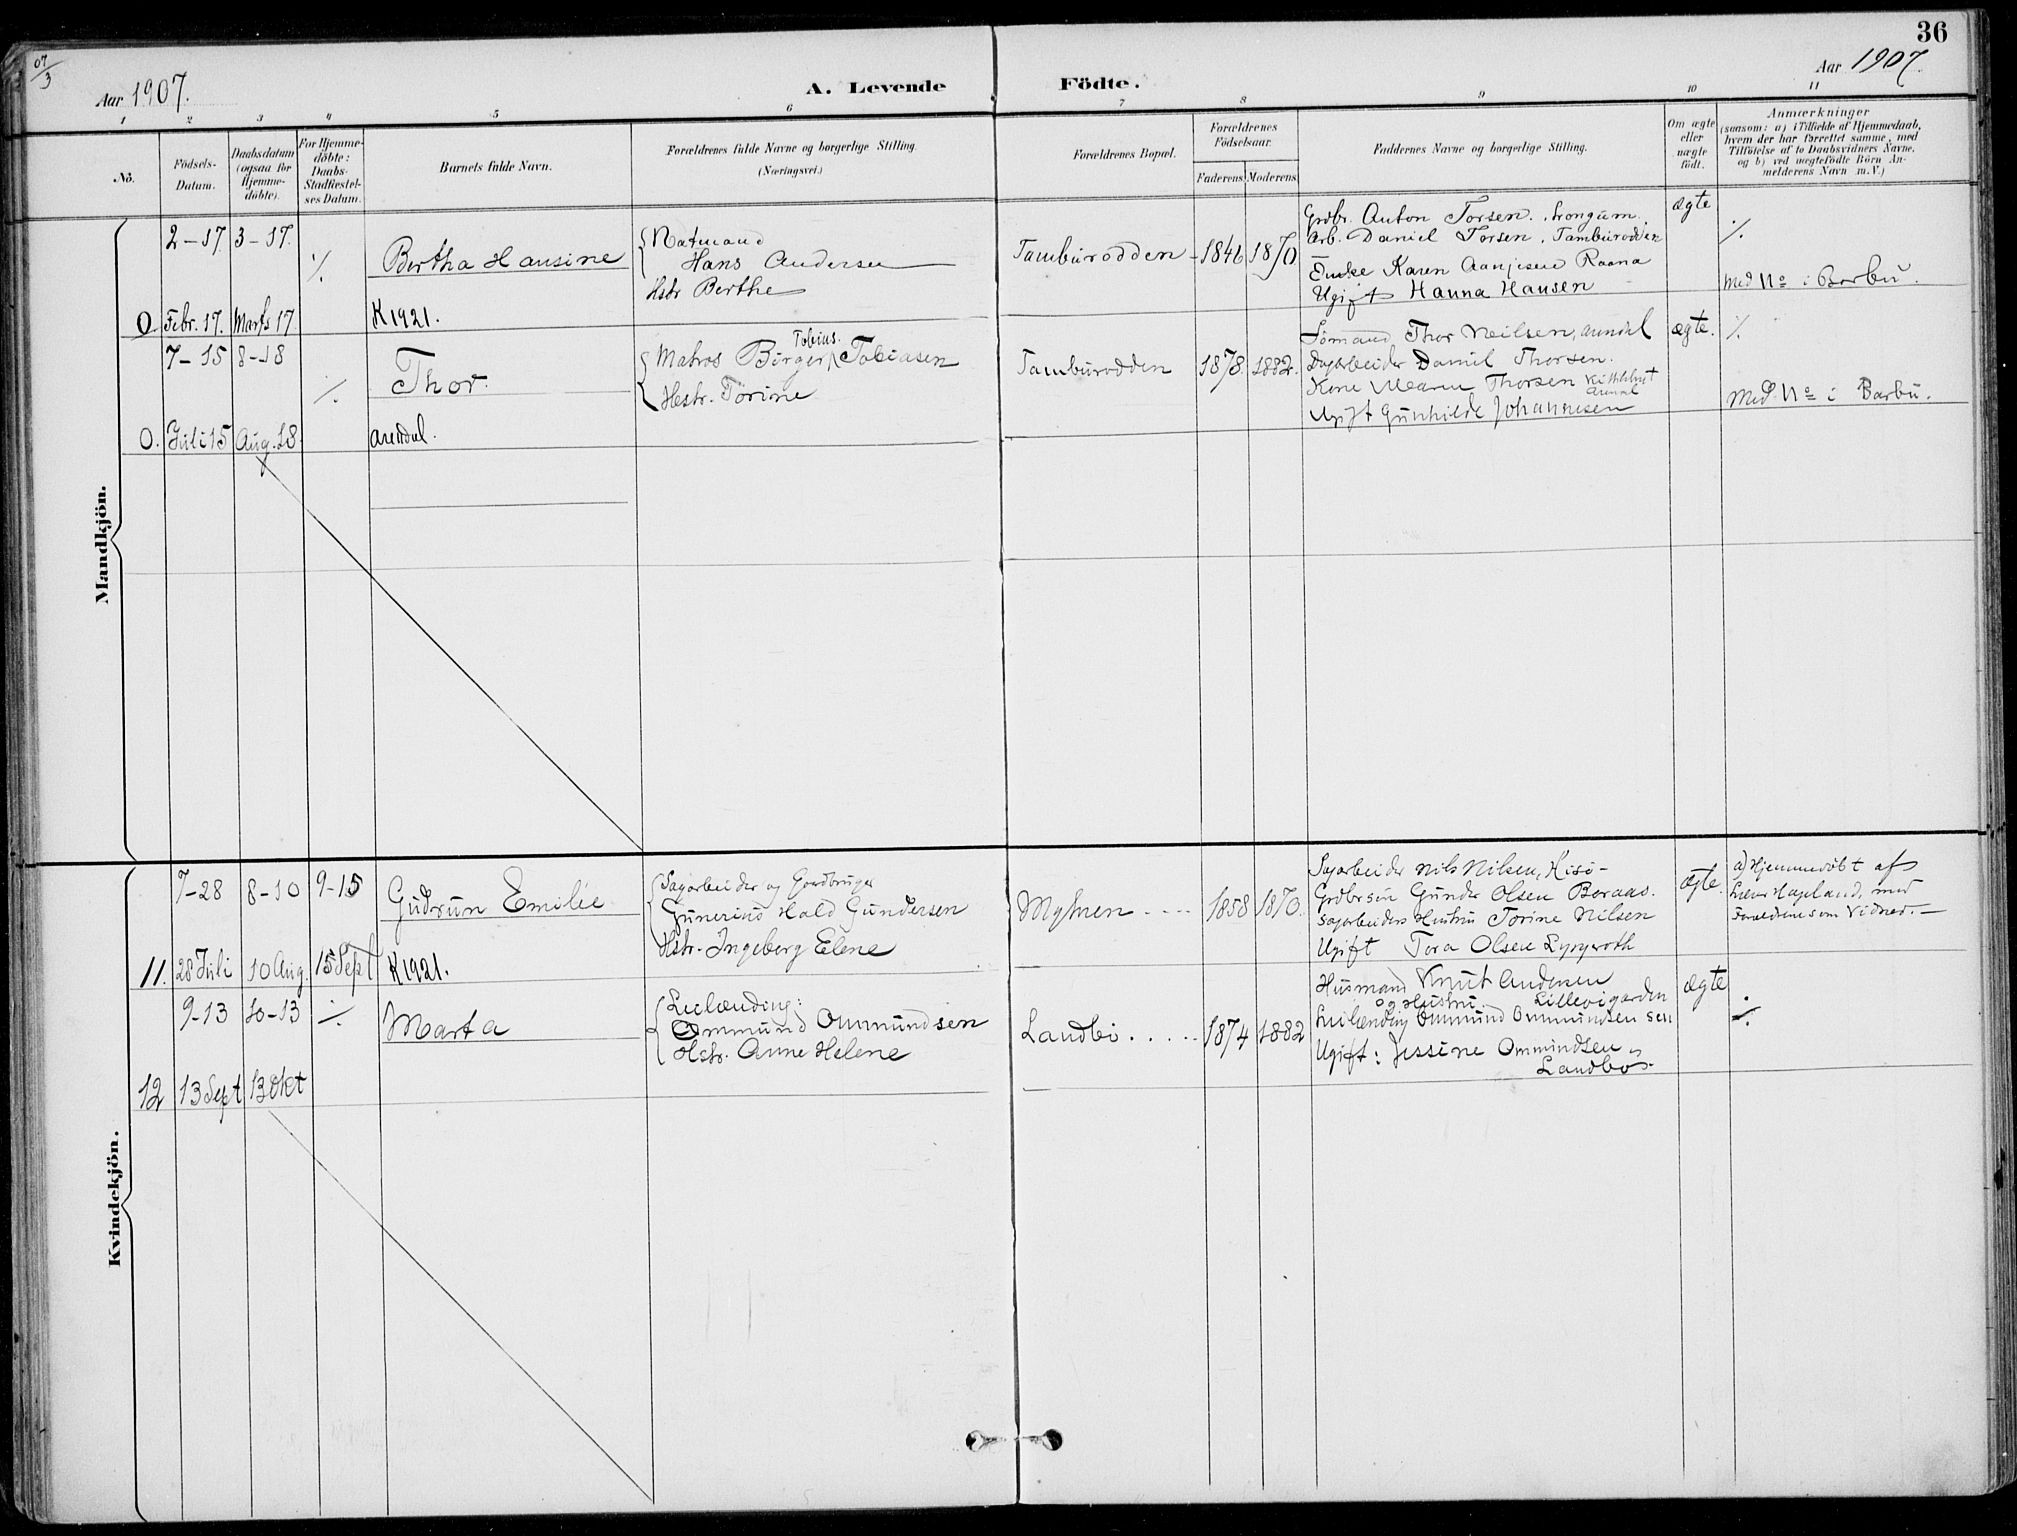 36
07/3
Aar 1907.
A. Levende Födte.
Aar 1907.
1 2 3 4 5 6 7 8 9 10 11
No.
Födsels-Datum.
Daabsdatum (ogsaa för Hjemme-döbte).
For Hjemme-döbte: Daabs-Stadfæstel-ses Datum.
Barnets fulde Navn.
Forældrenes fulde Navne og borgerlige Stilling.
(Næringsvei.)
Forældrenes Bopæl.
Forældrenes Födselsaar.
Faderens Moderens
Faddernes Navne og borgerlige Stilling.
Om ægte eller uægte födt.
Anmærkninger
(saasom: a) i Tilfælde af Hjemmedaab,
hvem der har forrettet samme, med
Tilföielse af to Daabsvidners Navne,
og b) ved uægtefödte Börn An-
melderens Navn m.V.)
Mandkjön.
2-17 3-17.
÷
Bertha Hansine
Natmand
Hans Andersen
Hstr Berthe
Tamburodden 1846 1870
Grdbr. Anton Torsen. Longum.
Arb. Daniel Torsen, Tamburodden
Enke Karen Aanjesen Raana
Ugift Hanna Hansen
ægte
÷
med No i Barbu.
0 Febr. 17. Marts 17
K1921.
7-15 8-18
÷
Thor
Tobius.
Matros Birger Tobiasen
Hstr. Torine
Tamburodden 1878. 1882.
Sömand Thor Neilsen, Arendal
Dagarbeider Daniel Thorsen.
Kone Maren Thorsen
Ugift Gunhilde Johannesen
ægte.
÷
med No i Barbu.
0. Juli 15 Aug. 18.
Arendal.
Kvindekjön.
7-28 8-10 9-15
Gudrun Emilie
Sagarbeider og Gaardbruger
Gunerius Hald Gundersen
Hstr. Ingeberg Elene
Myhren 1858 1870.
Sagarbeider Nils Nilsen, Hisö-
Grdbrsön Gunder Olsen Beraas.
Sagarbeiders Hustru Torine Nilsen
Ugift Tora Olsen Lyngroth
ægte.
a) Hjemmedöbt af
Lærer Hapeland, med
Forældrene som Vidner.
11. 28 Juli 10 Aug. 15 Sept
K1921.
9-13 10-13 ÷
Marta
Leilænding:
Ommund Ommundsen
Hstr. Anne Helene
Landbö 1874 1882
Husmand Knut Andersen
og Hustru Lillevigarden
Leilænding Ommund Ommundsen sen
Ugift: Jessine Ommundsen
Landbö.
ægte
÷
12 13 Sept 13 Okt